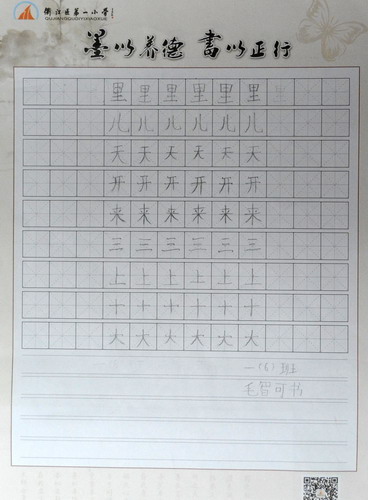 衢江区第一小学
QUJIANGQUDIYIXIAOXUE
墨以养德 書以正行
里里里里里里
儿儿儿儿儿儿
天天天天天天
开开开开开开
来来来来来来
三三三三三三
上上上上上上
十十十十十十
大大大大大大
一(6)班
毛智可书